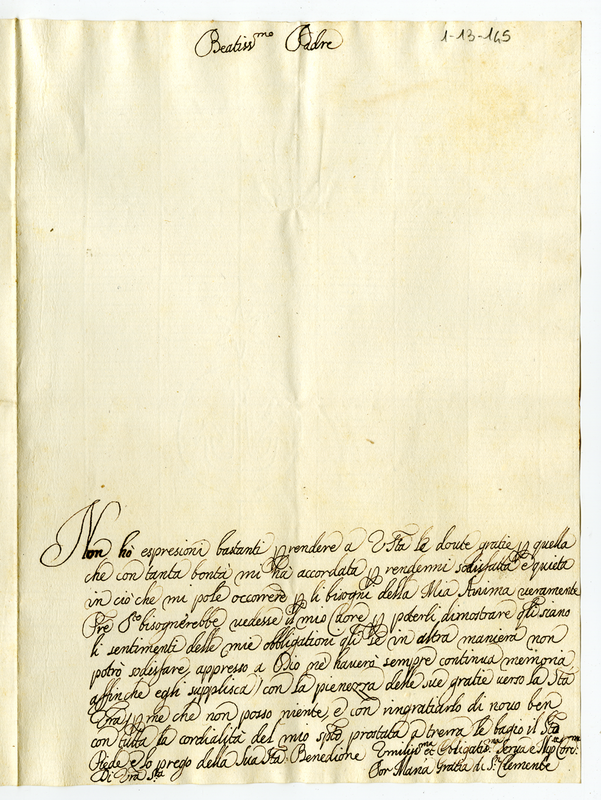 Beatiss.mo Padre
1-13-165
Non hò espresioni bastanti p rendere a V Stà le doute gratie p quella
che con tanta bontà mi hà accordata p rendermi sodisfatta e quieta
in ciò che mi pole occorere p li bisogni della Mia Anima veramente
Pre S.to bisognerebbe vedesse il mio Cuore p poterli dimostrare quali siano
li sentimenti delle mie obbligationi
in altra maniera non
potrò sodisfare, appresso a Dio ne haverà sempre continua memoria
affinche egli supplisca con la pienezza delle sue gratie verso la Stà
Vra p me che non posso niente, e con ringratiarlo di novo ben
con tutta la cordialità del mio spto prostata a terra le bagio il Sto
Piede e lo prego della Sua Sta Benedione
Umiliss.ma et Obligatis.ma Serva e
Di Vra Stà
Sor Maria Gratia di S. Clemente